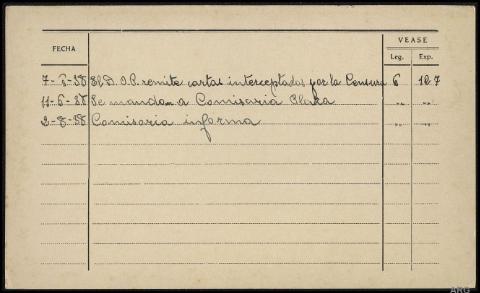 VEASE
FECHA
Leg. Exp.
7-6-38 El D. O.P. remite cartas interceptadas por la Censura 6 127
11-6-38 Se mandan a Comisaria Plaza " "
2-8-38 Comisaria informa " "
ARG